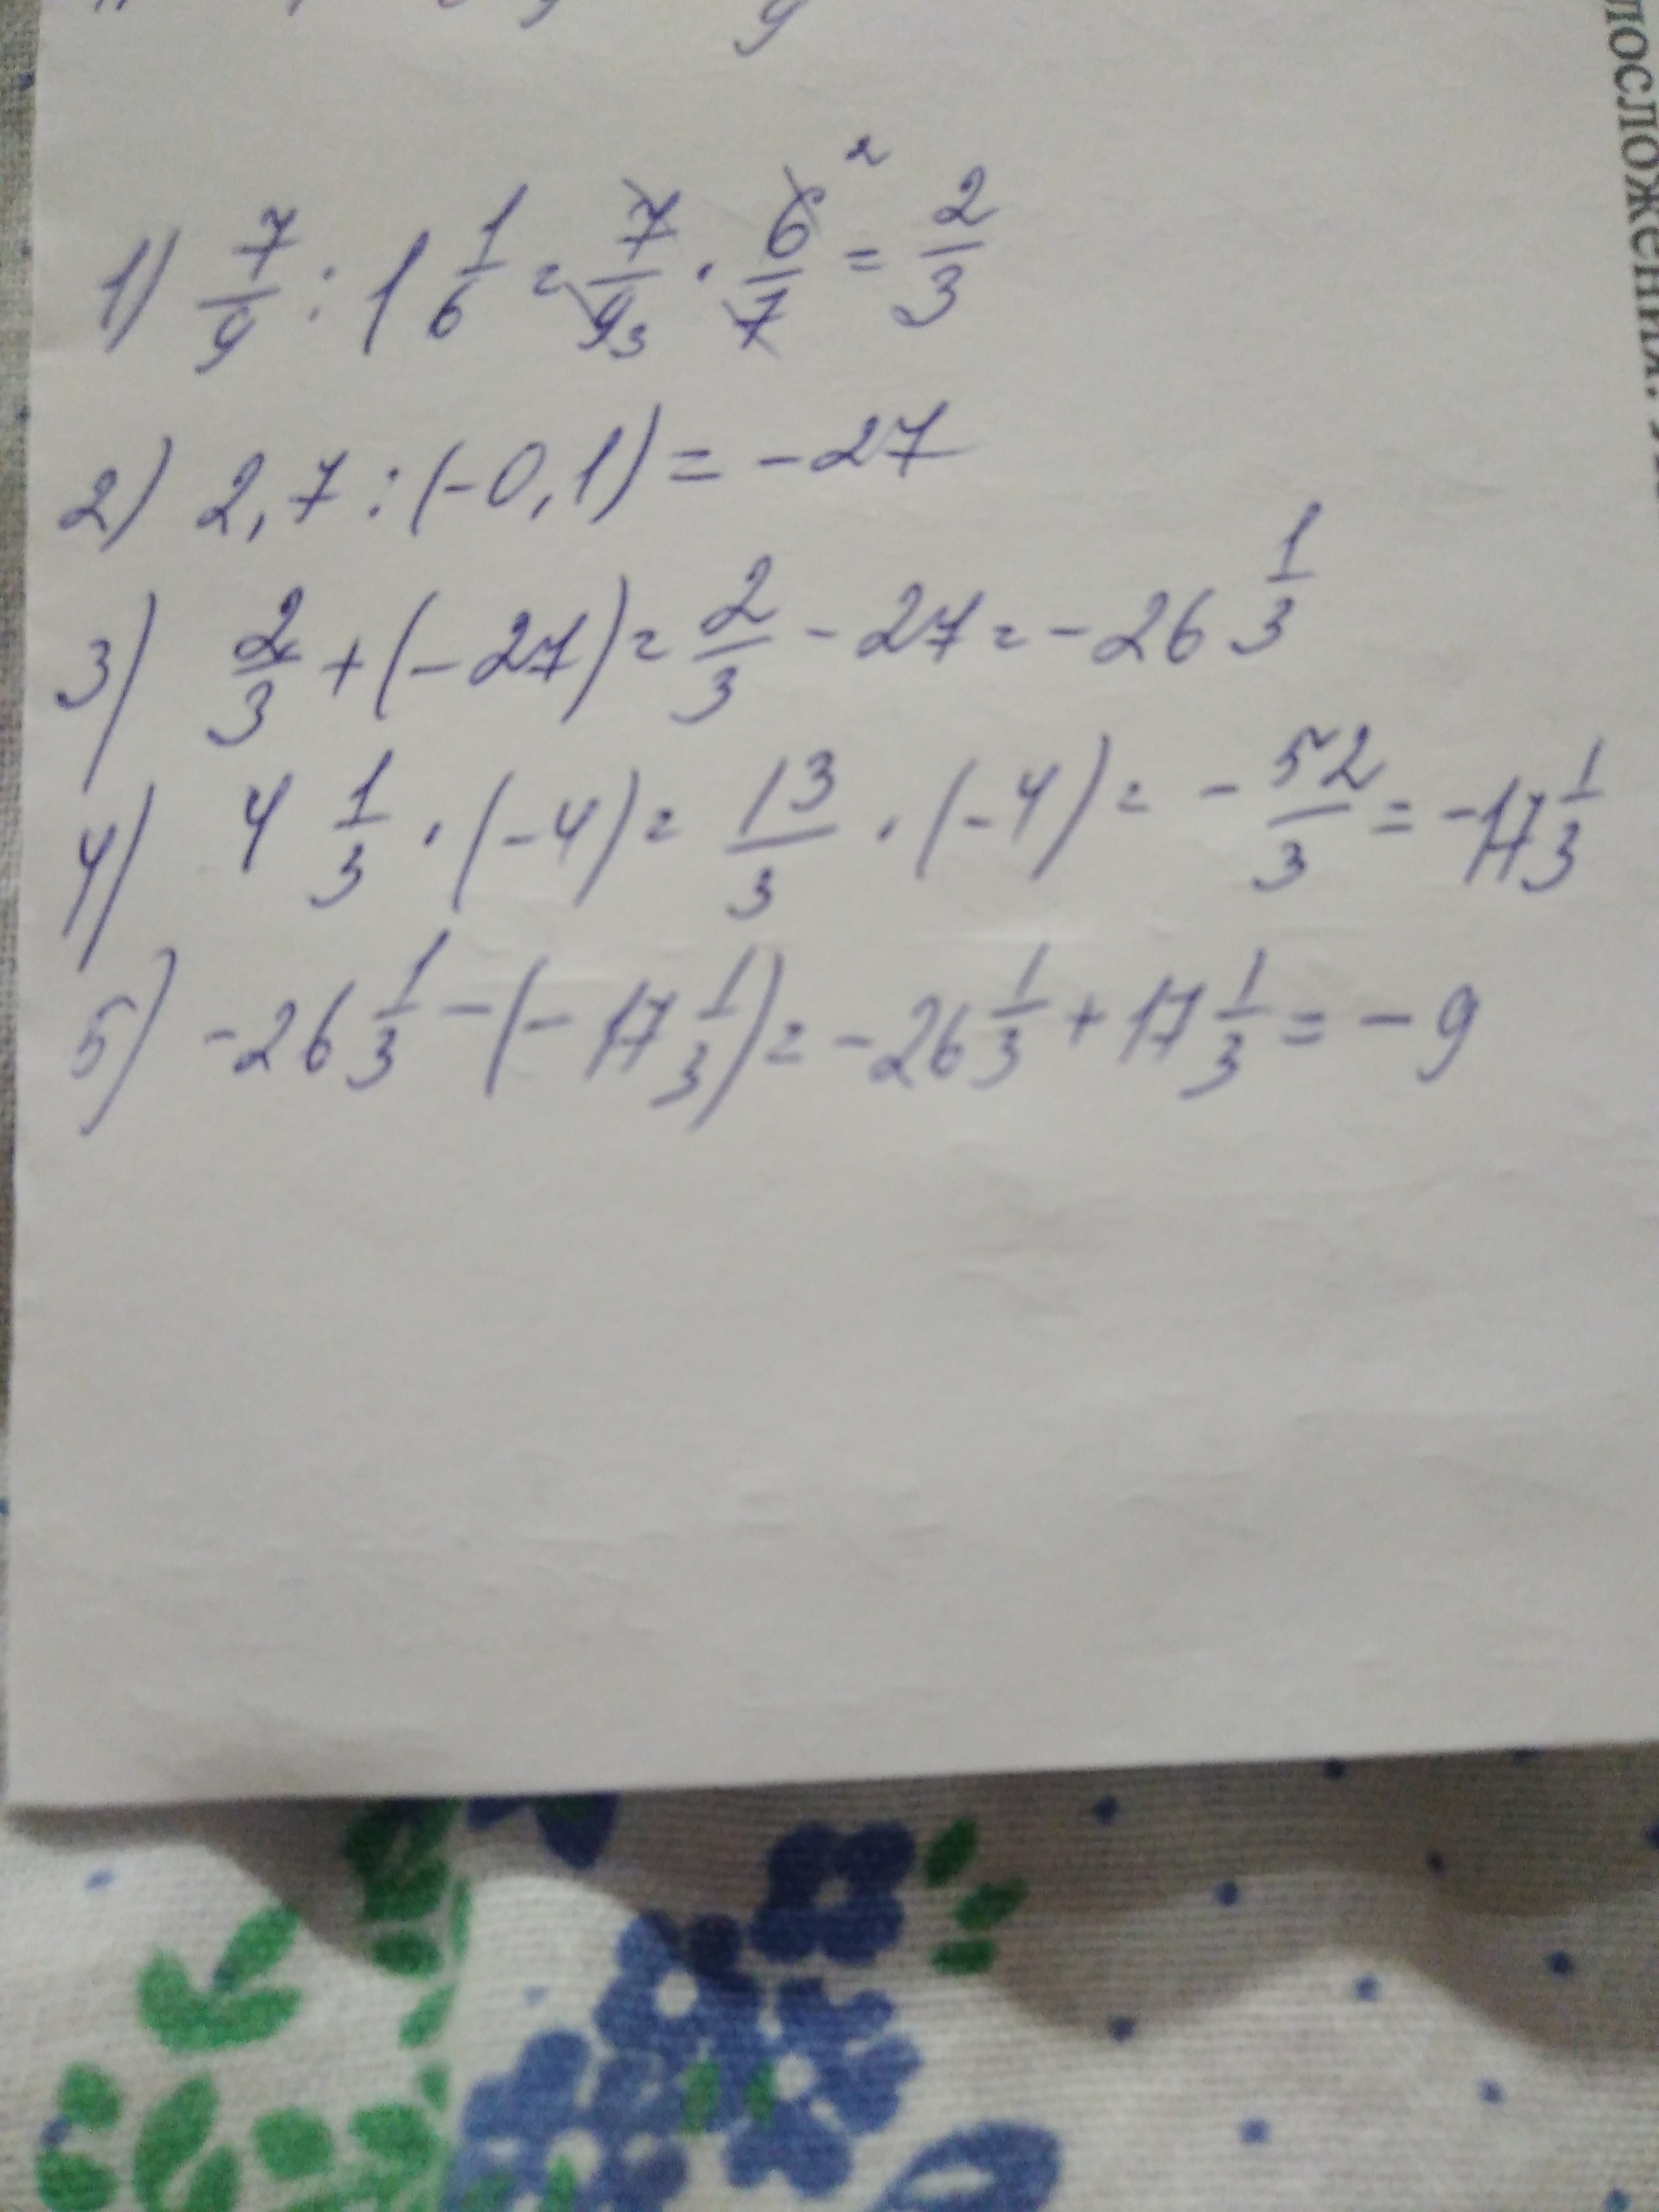 1) 7/9 : 1 1/6 = 7/9 3 · 6/7 2 = 2/3
2) 2,7 : (-0,1) = -27
3) 2/3 + (-27) = 2/3 - 27 = -26 1/3
4) 4 1/3 · (-4) = 13/3 · (-4) = - 52/3 = -17 1/3
5) -26 1/3 - (-17 1/3) = -26 1/3 + 17 1/3 = -9